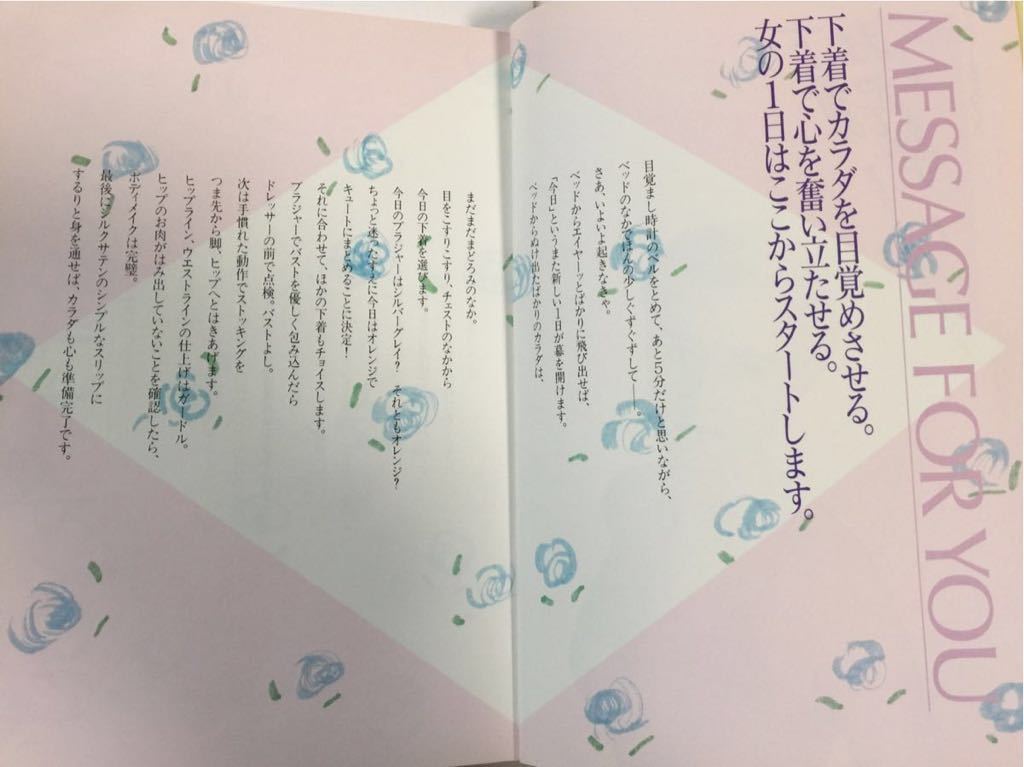 MESSAGE FOR YOU
下着でカラダを目覚めさせる。
下着で心を奮い立たせる。
女の1日はここからスタートします。
目覚まし時計のベルをとめて、あと5分だけと思いながら、
ベッドのなかでほんの少しぐずぐずして——。
さあ、いよいよ起きなきゃ。
ベッドからエイヤーッとばかりに飛び出せば、
「今日」というまた新しい1日が幕を開けます。
ベッドからぬけ出たばかりのカラダは、
まだまだまどろみのなか。
目をこすりこすり、チェストのなかから
今日の下着を選びます。
今日のブラジャーはシルバーグレイ? それともオレンジ?
ちょっと迷ったすえに今日はオレンジで
キュートにまとめることに決定!
それに合わせて、ほかの下着もチョイスします。
ブラジャーでバストを優しく包み込んだら
ドレッサーの前で点検。バストよし。
次は手慣れた動作でストッキングを
つま先から脚、ヒップへとはきあげます。
ヒップライン、ウエストラインの仕上げはガードル。
ヒップのお肉がはみ出していないことを確認したら、
ボディメイクは完璧。
最後にシルクサテンのシンプルなスリップに
するりと身を通せば、カラダも心も準備完了です。